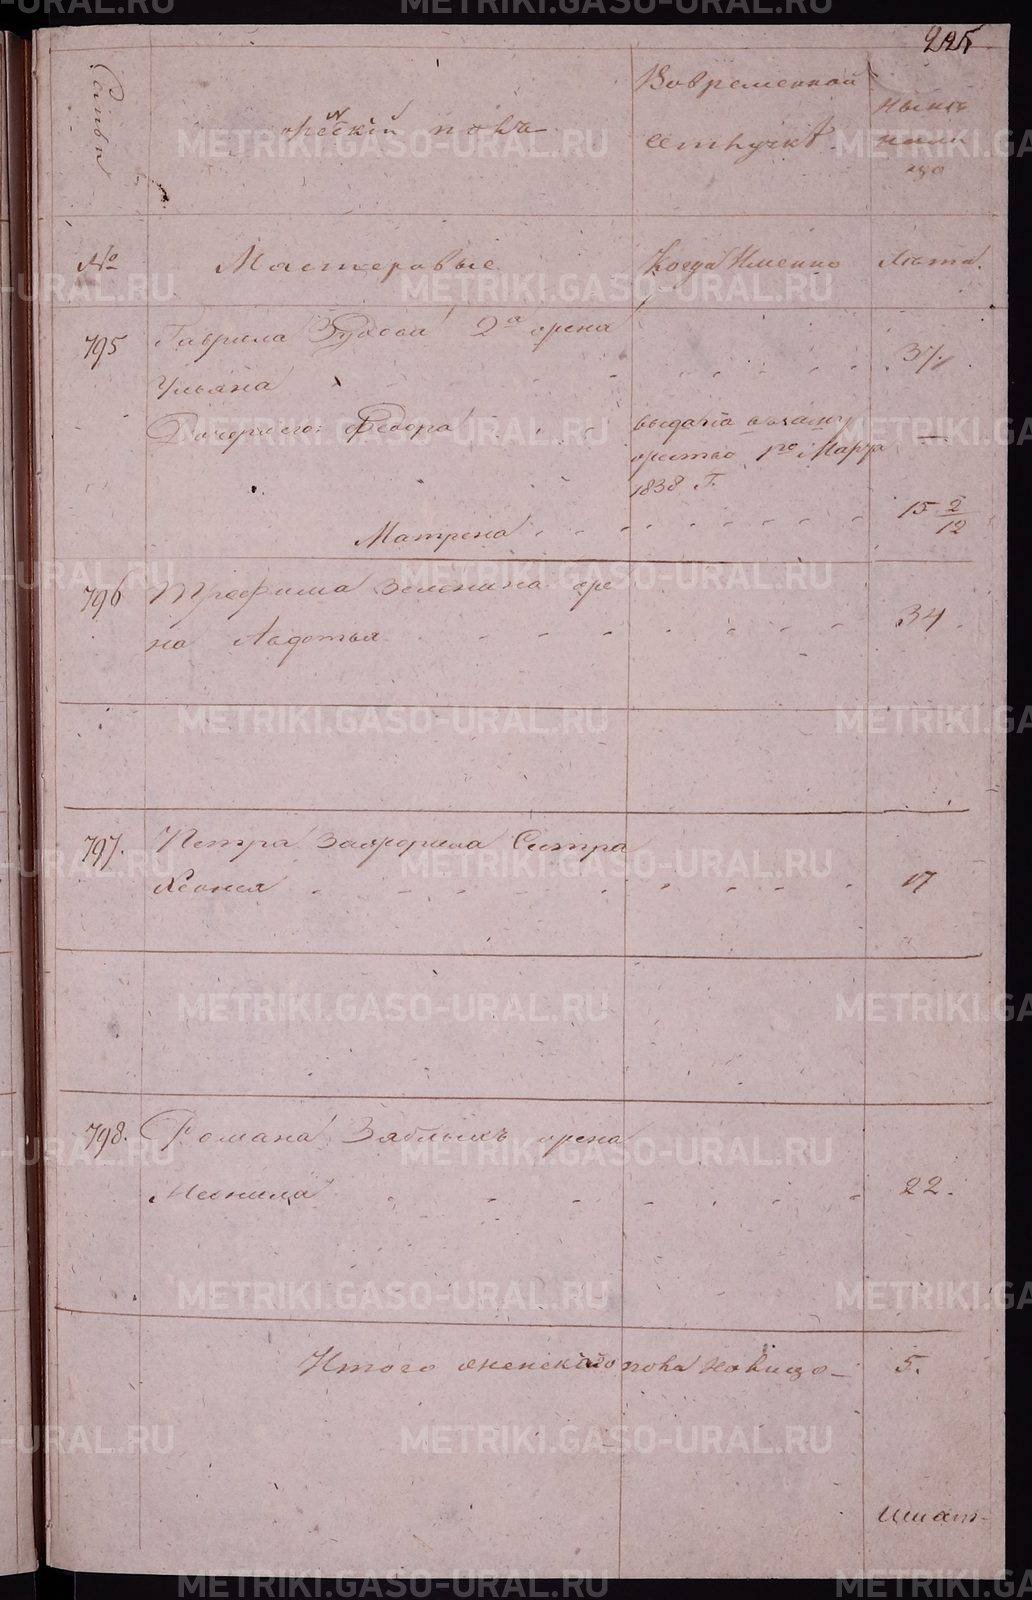 225
Семьи
женскій полъ
Вовременной
отлучкѣ
ныне
на ли
цо
№
Мастеровые
Когда Именно
Лѣта.
795
Гаврила 2я жена
Ульяна
37.
Дочери его: Федора
выдана в замужество 1го Марта
1838 Г.
—
Матрена
15 2/12
796
Трофима Зеленина же
на Авдотья
34.
797.
Петра Сестра
Ксения
17
798.
Романа Зяблыхъ жена
Неонила
22.
Итого женскаго пола на лицо
5.
METRIKI.GASO-URAL.RU